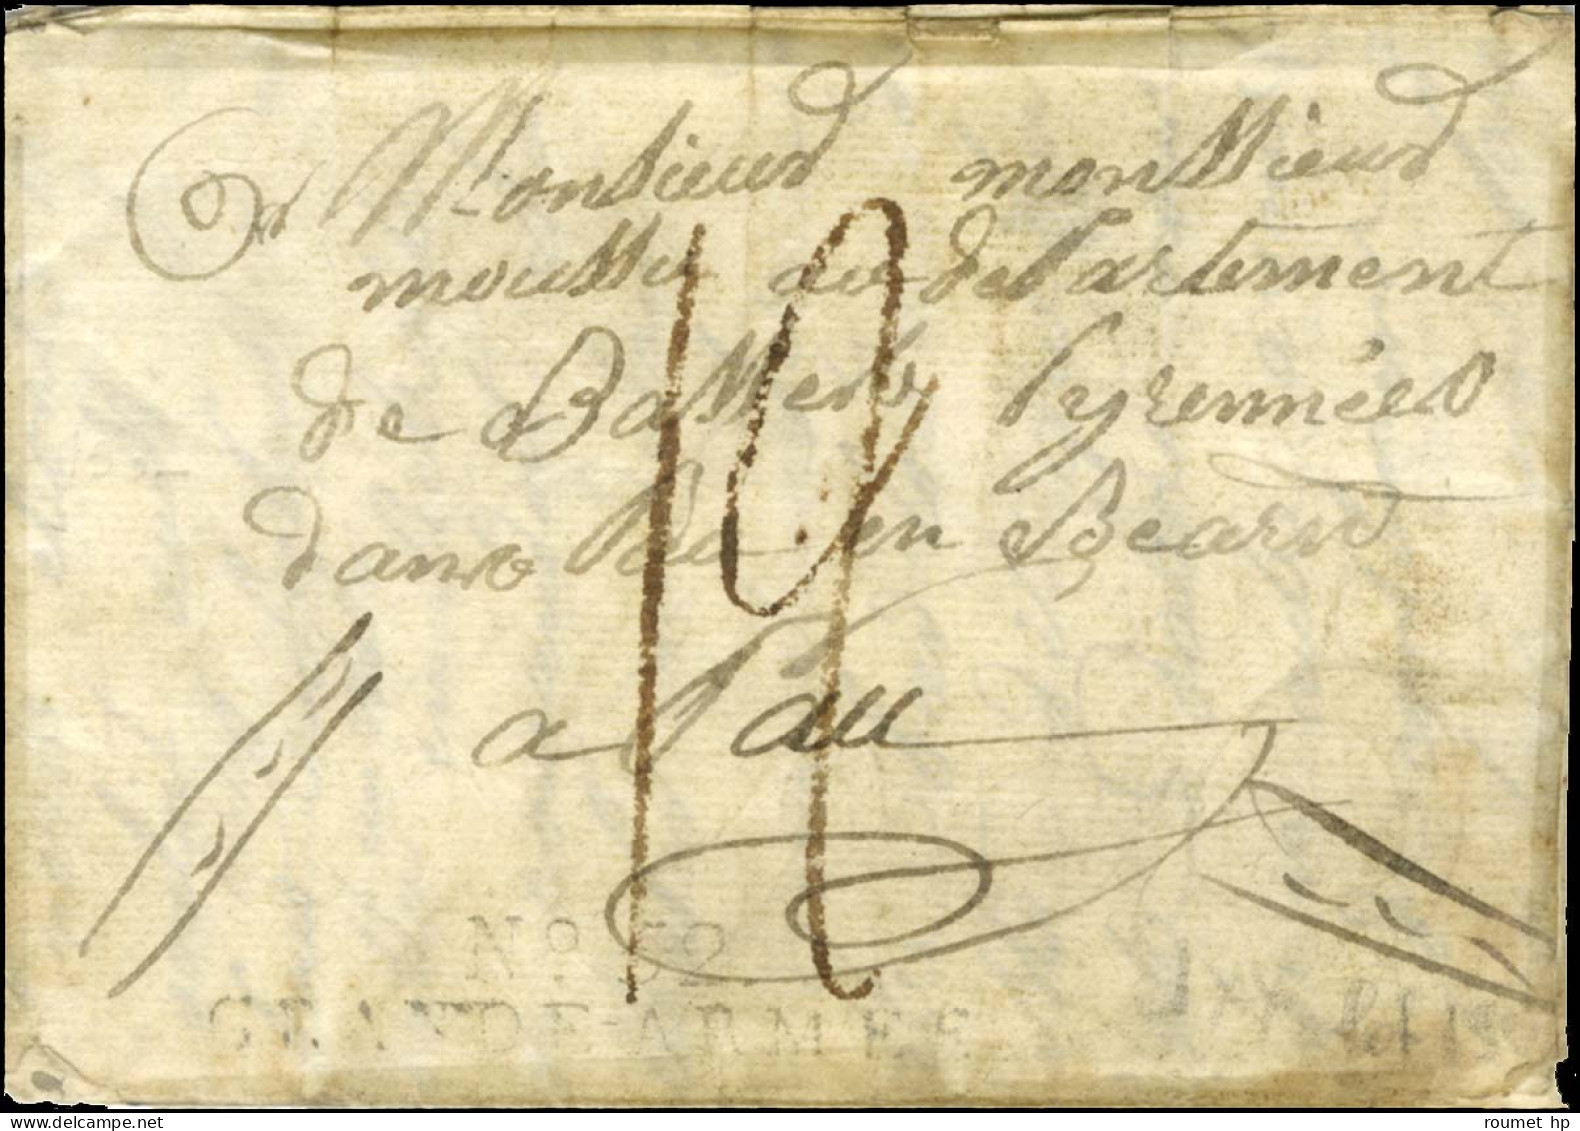 Monsieur monssieur
moussu au departement
de Basses Pyrennées
dans Pau en Bearn
a Pau
12
No 20
www.delcampe.net
roumet hp